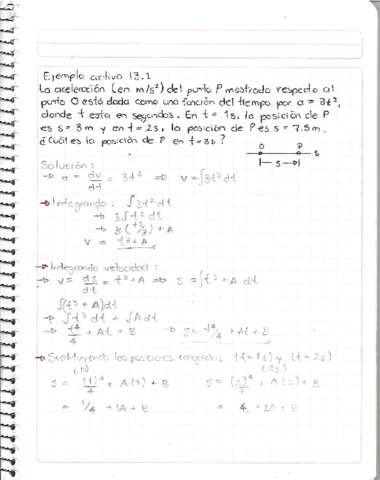 Ejemplo activo 13.1
La aceleración (en m/s²) del punto P mostrado respecto al
punto O está dada como una función del tiempo por a = 3t²,
donde t esta en segundos. En t = 1s, la posición de P
es s = 3m y en t = 2s, la posición de P es s = 7.5m.
¿Cuál es la posición de P en t = 3s?
O P
s
s
Solución:
→ a = dv/dt = 3t² ⇒ v = ∫3t² dt
→ Integrando: ∫3t² dt
→ 3∫t² dt
→ 3(t³/3) + A
v = t³ + A
→ Integrando velocidad:
→ v = ds/dt = t³ + A ⇒ s = ∫t³ + A dt
∫(t³ + A)dt
→ ∫t³ dt + ∫A dt
→ t⁴/4 + At + B → s = t⁴/4 + At + B
→ Sustituyendo las posiciones conocidas: (t = 1s) y (t = 2s)
(1s) (2s)
s = (1)⁴/4 + A(1) + B s = (2)⁴/4 + A(2) + B
= 1/4 + 1A + B = 4 + 2A + B